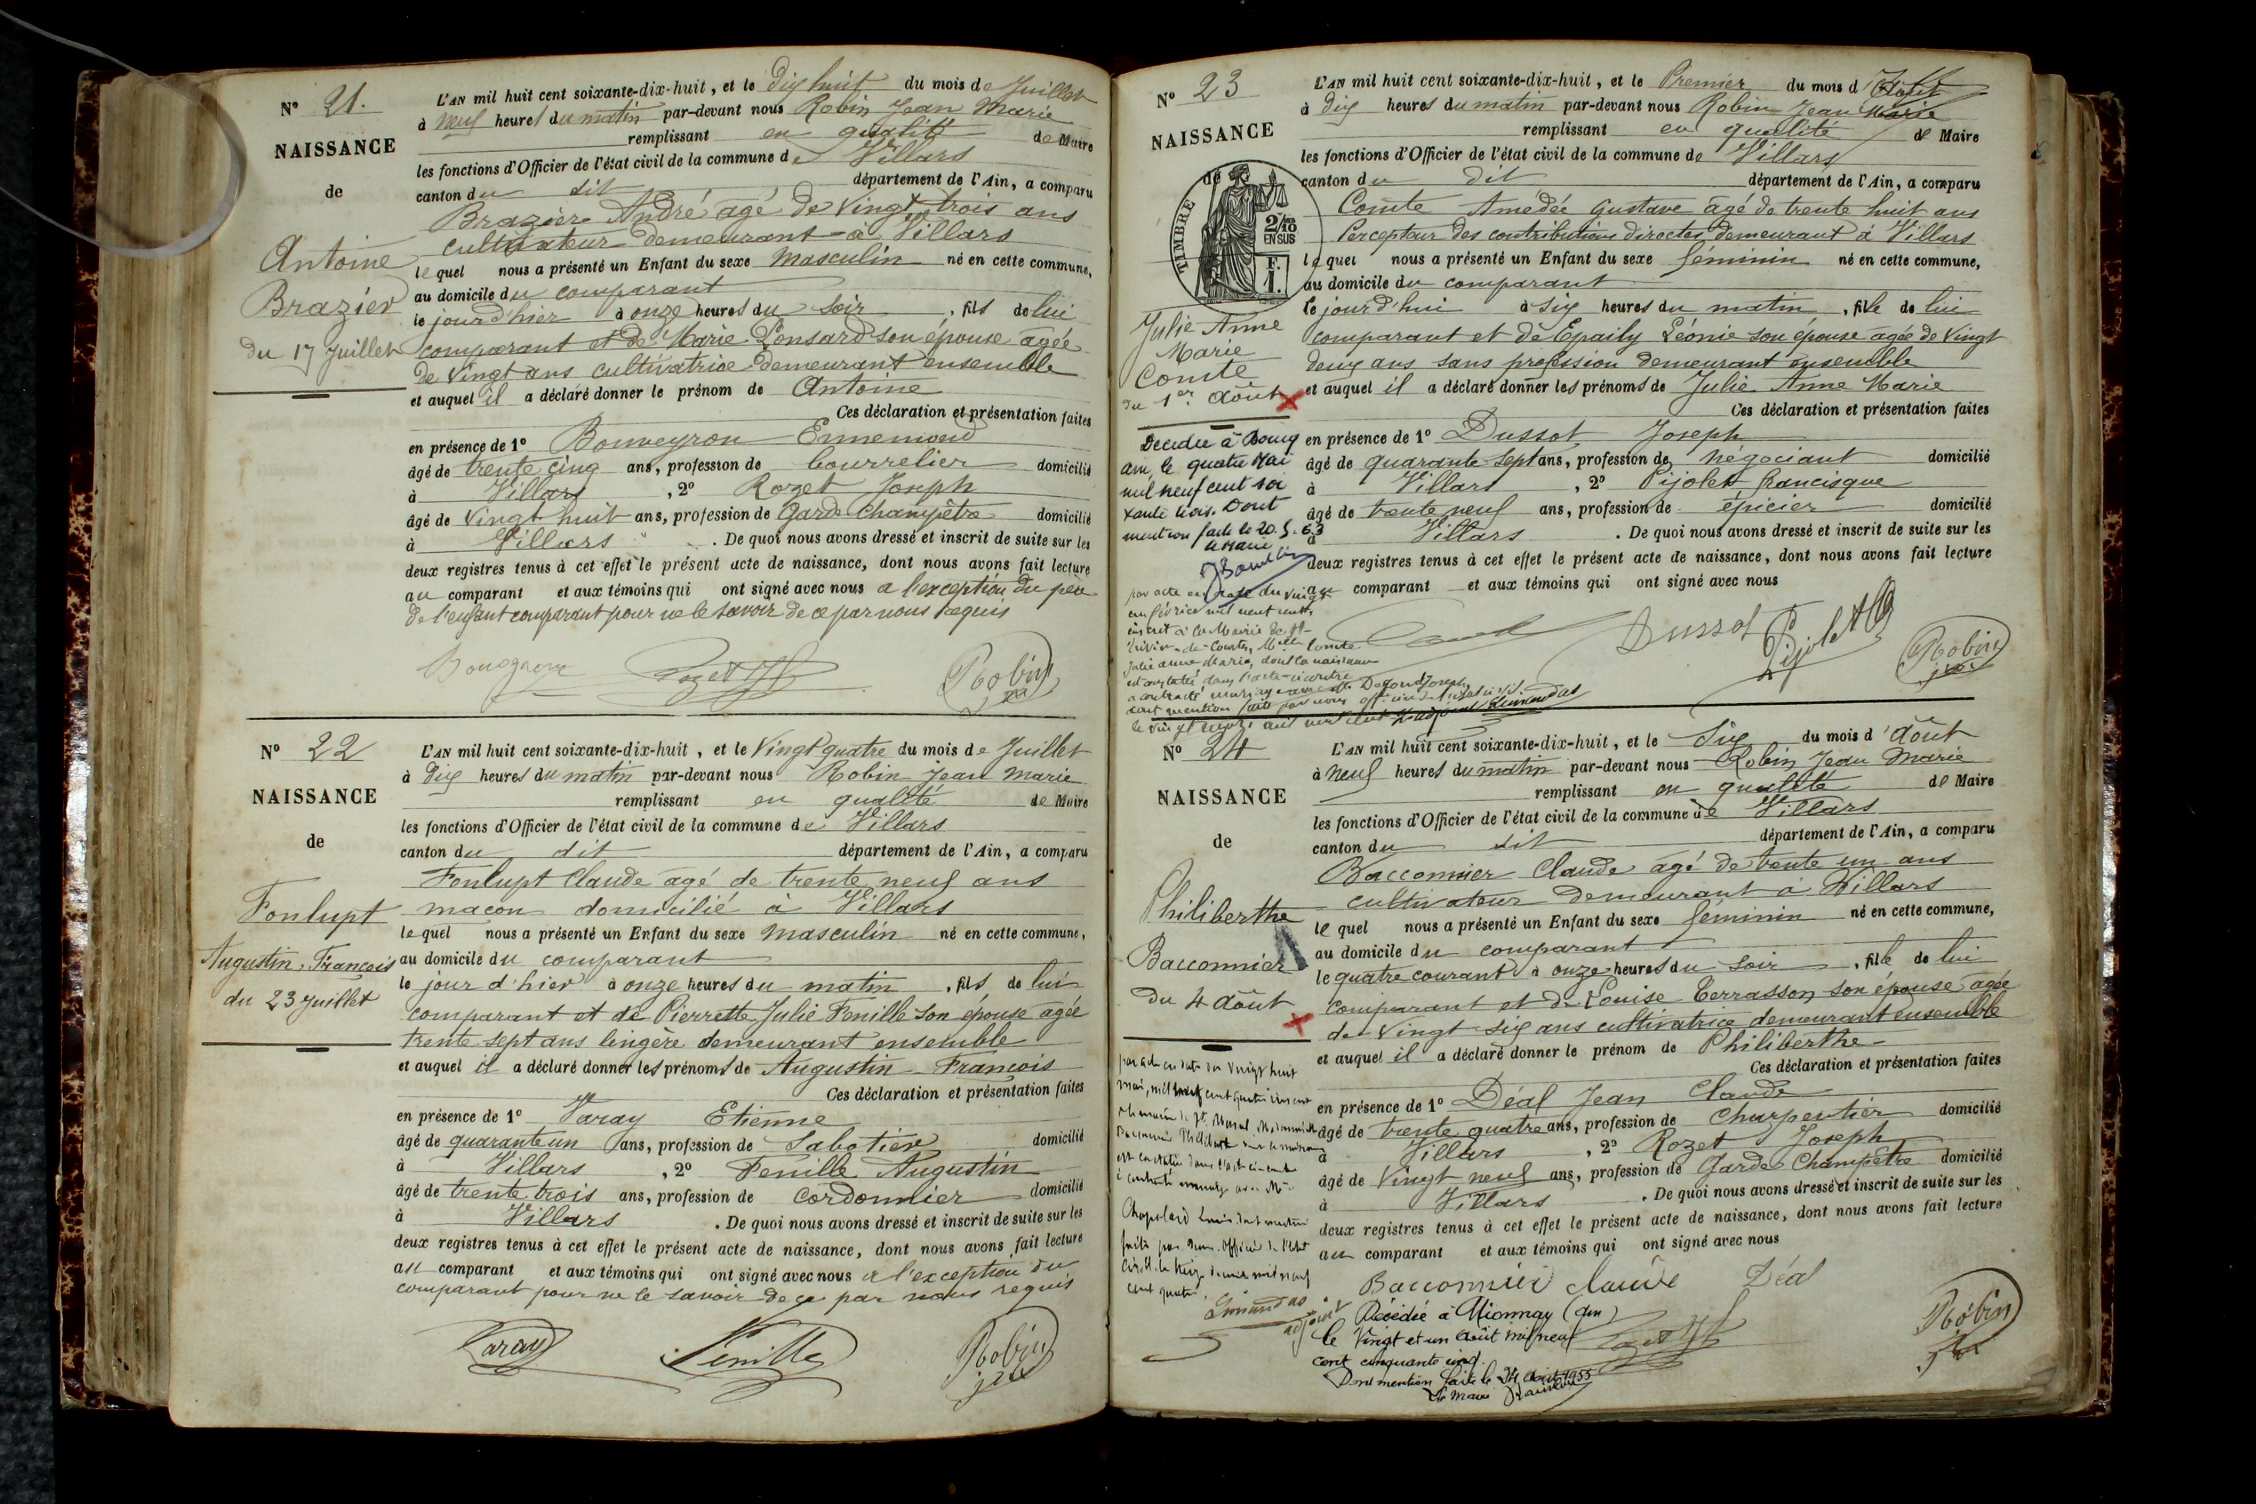 N° 21.
NAISSANCE
de
Antoine
Brazier
du 17 Juillet
L'AN mil huit cent soixante-dix-huit, et le Dix huit du mois de Juillet
à neuf heures du matin par-devant nous Robin Jean Marie
remplissant en qualité de Maire
les fonctions d'Officier de l'état civil de la commune de Villars
canton du dit département de l'Ain, a comparu
Brazier André agé de Vingt trois ans
cultivateur demeurant à Villars
lequel nous a présenté un Enfant du sexe masculin né en cette commune,
au domicile du comparant
le jour d'hier à onze heures du soir, fils de lui
comparant et de Marie Ponsard son épouse agée
de Vingt ans cultivatrice demeurant ensemble
et auquel il a déclaré donner le prénom de Antoine
Ces déclaration et présentation faites
en présence de 1° Bouveyron Ennemond
âgé de trente cinq ans, profession de bourrelier domicilié
à Villars, 2° Rozet Joseph
âgé de Vingt huit ans, profession de Garde Champêtre domicilié
à Villars. De quoi nous avons dressé et inscrit de suite sur les
deux registres tenus à cet effet le présent acte de naissance, dont nous avons fait lecture
au comparant et aux témoins qui ont signé avec nous a l'exception du père
de l'enfant comparant pour ne le savoir de ce par nous requis
Rozet
Robin
N° 22
NAISSANCE
de
Fonlupt
Augustin, François
du 23 Juillet
L'AN mil huit cent soixante-dix-huit, et le Vingt quatre du mois de Juillet
à Dix heures du matin par-devant nous Robin Jean Marie
remplissant en qualité de Maire
les fonctions d'Officier de l'état civil de la commune de Villars
canton du dit département de l'Ain, a comparu
Fonlupt Claude agé de trente neuf ans
maçon domicilié à Villars
lequel nous a présenté un Enfant du sexe masculin né en cette commune,
au domicile du comparant
le jour d'hier à onze heures du matin, fils de lui
comparant et de Pierrette Julie Fenille son épouse agée
trente sept ans lingère demeurant ensemble
et auquel il a déclaré donner les prénoms de Augustin François
Ces déclaration et présentation faites
en présence de 1° Varay Etienne
âgé de quarante un ans, profession de Sabotier domicilié
à Villars, 2° Fenille Augustin
âgé de trente trois ans, profession de cordonnier domicilié
à Villars. De quoi nous avons dressé et inscrit de suite sur les
deux registres tenus à cet effet le présent acte de naissance, dont nous avons fait lecture
au comparant et aux témoins qui ont signé avec nous a l'exception du
comparant pour ne le savoir de ce par nous requis
Varay
Fenille
Robin
N° 23
NAISSANCE
de
TIMBRE
2/10
EN SUS
F.
1.
Julie Anne
Marie
Comte
du 1er Août
Décédée à Bourg
Ain, le quatre Mai
mil neuf cent soi
xante trois. Dont
mention faite le 20.5.63
le Maire
par acte en date du vingt
un février mil neuf cent
inscrit à la Mairie de St
Trivier-de-Courtes, Melle Comte
Julie Anne Marie, dont la naissance
est constatée dans l'acte ci-contre
a contracté mariage avec Joseph
dont mention faite par nous officier de l'état civil
L'AN mil huit cent soixante-dix-huit, et le Premier du mois d'Août
à Dix heures du matin par-devant nous Robin Jean Marie
remplissant en qualité de Maire
les fonctions d'Officier de l'état civil de la commune de Villars
canton du dit département de l'Ain, a comparu
Comte Amédée Gustave agé de trente huit ans
Percepteur des contributions directes demeurant à Villars
lequel nous a présenté un Enfant du sexe féminin né en cette commune,
au domicile du comparant
le jour d'hui à six heures du matin, fille de lui
comparant et de Epaily Léonie son épouse agée de Vingt
deux ans sans profession demeurant ensemble
et auquel il a déclaré donner les prénoms de Julie Anne Marie
Ces déclaration et présentation faites
en présence de 1° Dussot Joseph
âgé de quarante sept ans, profession de négociant domicilié
à Villars, 2° Pijolet francisque
âgé de trente neuf ans, profession de épicier domicilié
à Villars. De quoi nous avons dressé et inscrit de suite sur les
deux registres tenus à cet effet le présent acte de naissance, dont nous avons fait lecture
au comparant et aux témoins qui ont signé avec nous
Dussot
Pijolet
Robin
N° 24
NAISSANCE
de
Philiberthe
Bacconnier
du 4 Août
par acte en date du vingt huit
mai, mil neuf cent quatre inscrit
a contracté mariage avec Mr
Chapolard Louis dont mention
faite par nous Officier de l'Etat
Civil le treize
cent quatre.
L'AN mil huit cent soixante-dix-huit, et le Six du mois d'Août
à neuf heures du matin par-devant nous Robin Jean Marie
remplissant en qualité de Maire
les fonctions d'Officier de l'état civil de la commune de Villars
canton du dit département de l'Ain, a comparu
Bacconnier Claude agé de trente un ans
cultivateur demeurant à Villars
lequel nous a présenté un Enfant du sexe féminin né en cette commune,
au domicile du comparant
le quatre courant à onze heures du soir, fille de lui
comparant et de Louise Terrasson son épouse agée
de Vingt six ans cultivatrice demeurant ensemble
et auquel il a déclaré donner le prénom de Philiberthe
Ces déclaration et présentation faites
en présence de 1° Déal Jean Claude
âgé de trente quatre ans, profession de Charpentier domicilié
à Villars, 2° Rozet Joseph
âgé de Vingt neuf ans, profession de Garde Champêtre domicilié
à Villars. De quoi nous avons dressé et inscrit de suite sur les
deux registres tenus à cet effet le présent acte de naissance, dont nous avons fait lecture
au comparant et aux témoins qui ont signé avec nous
Bacconnier Claude Déal
Décédée à Mionnay (Ain)
le Vingt et un Août mil neuf
cent cinquante cinq.
Dont mention faite le 24 Août 1955
Le Maire
Rozet
Robin